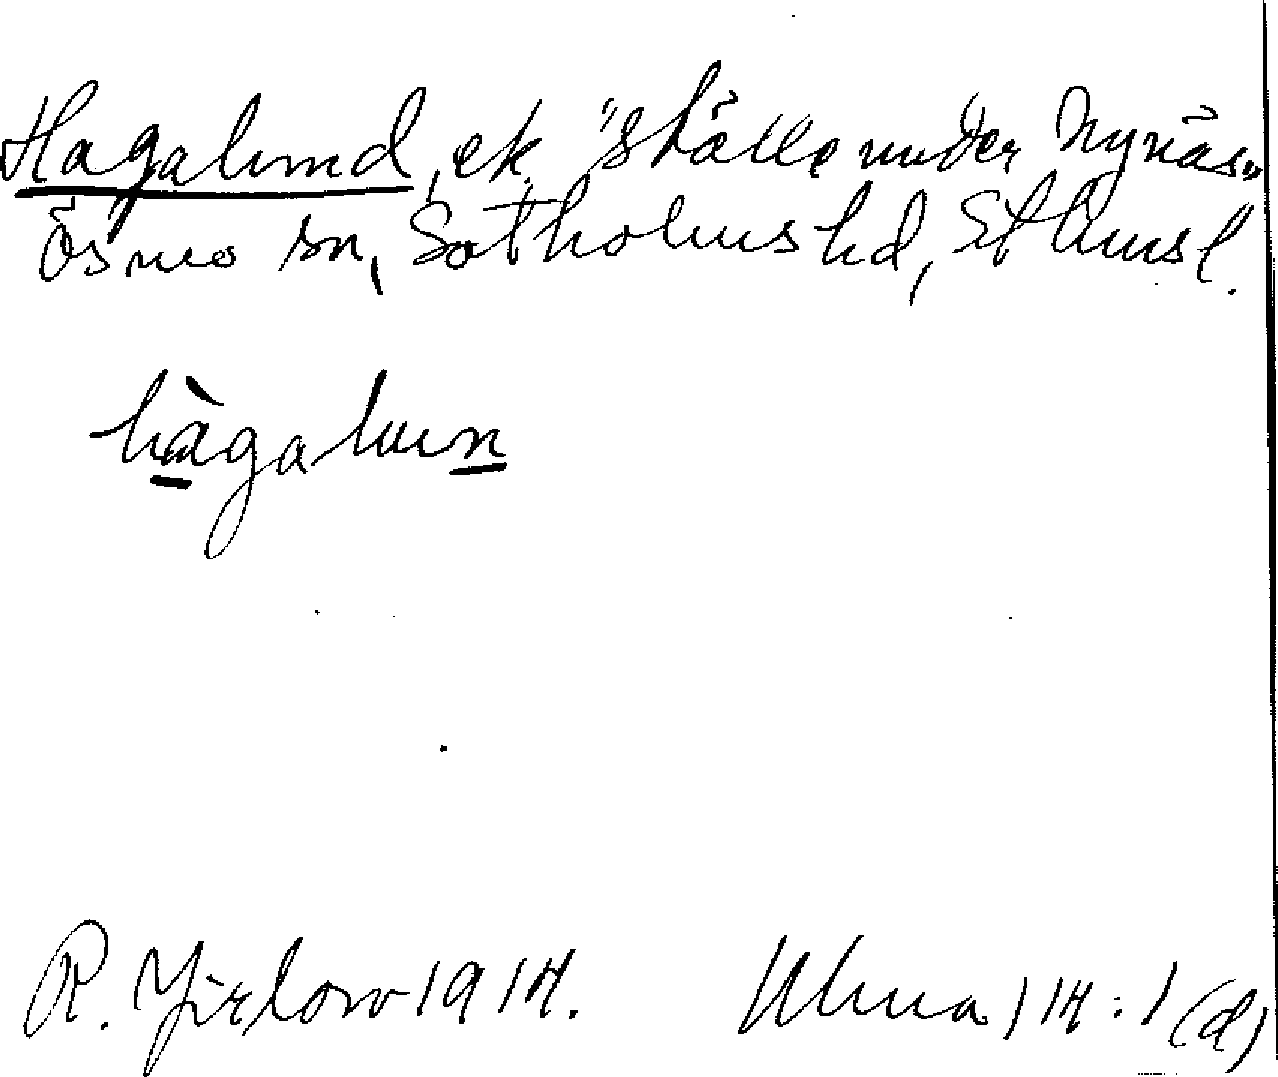 Hagalund, ek. "ställe under Nynäs"
Ösmo sn, Sotholms hd, Sthmsl.
hàgalun
R. Jirlow 1914. Ulma 114:1 (d)